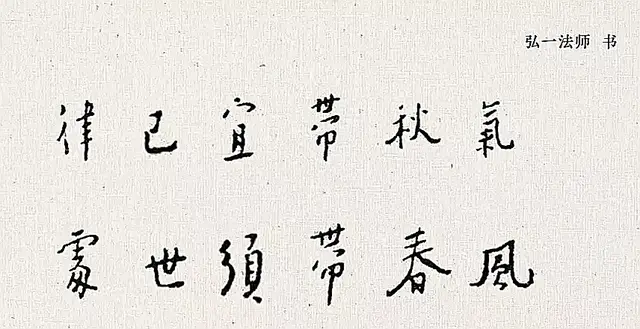 弘一法师 书
律己宜帶秋氣
處世須帶春風